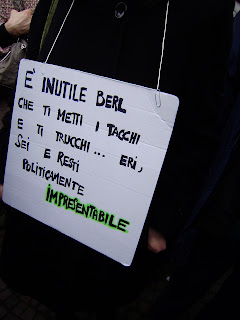 E' INUTILE BERL
CHE TI METTI I TACCHI
E TI TRUCCHI... ERI,
SEI E RESTI
POLITICAMENTE
IMPRESENTABILE